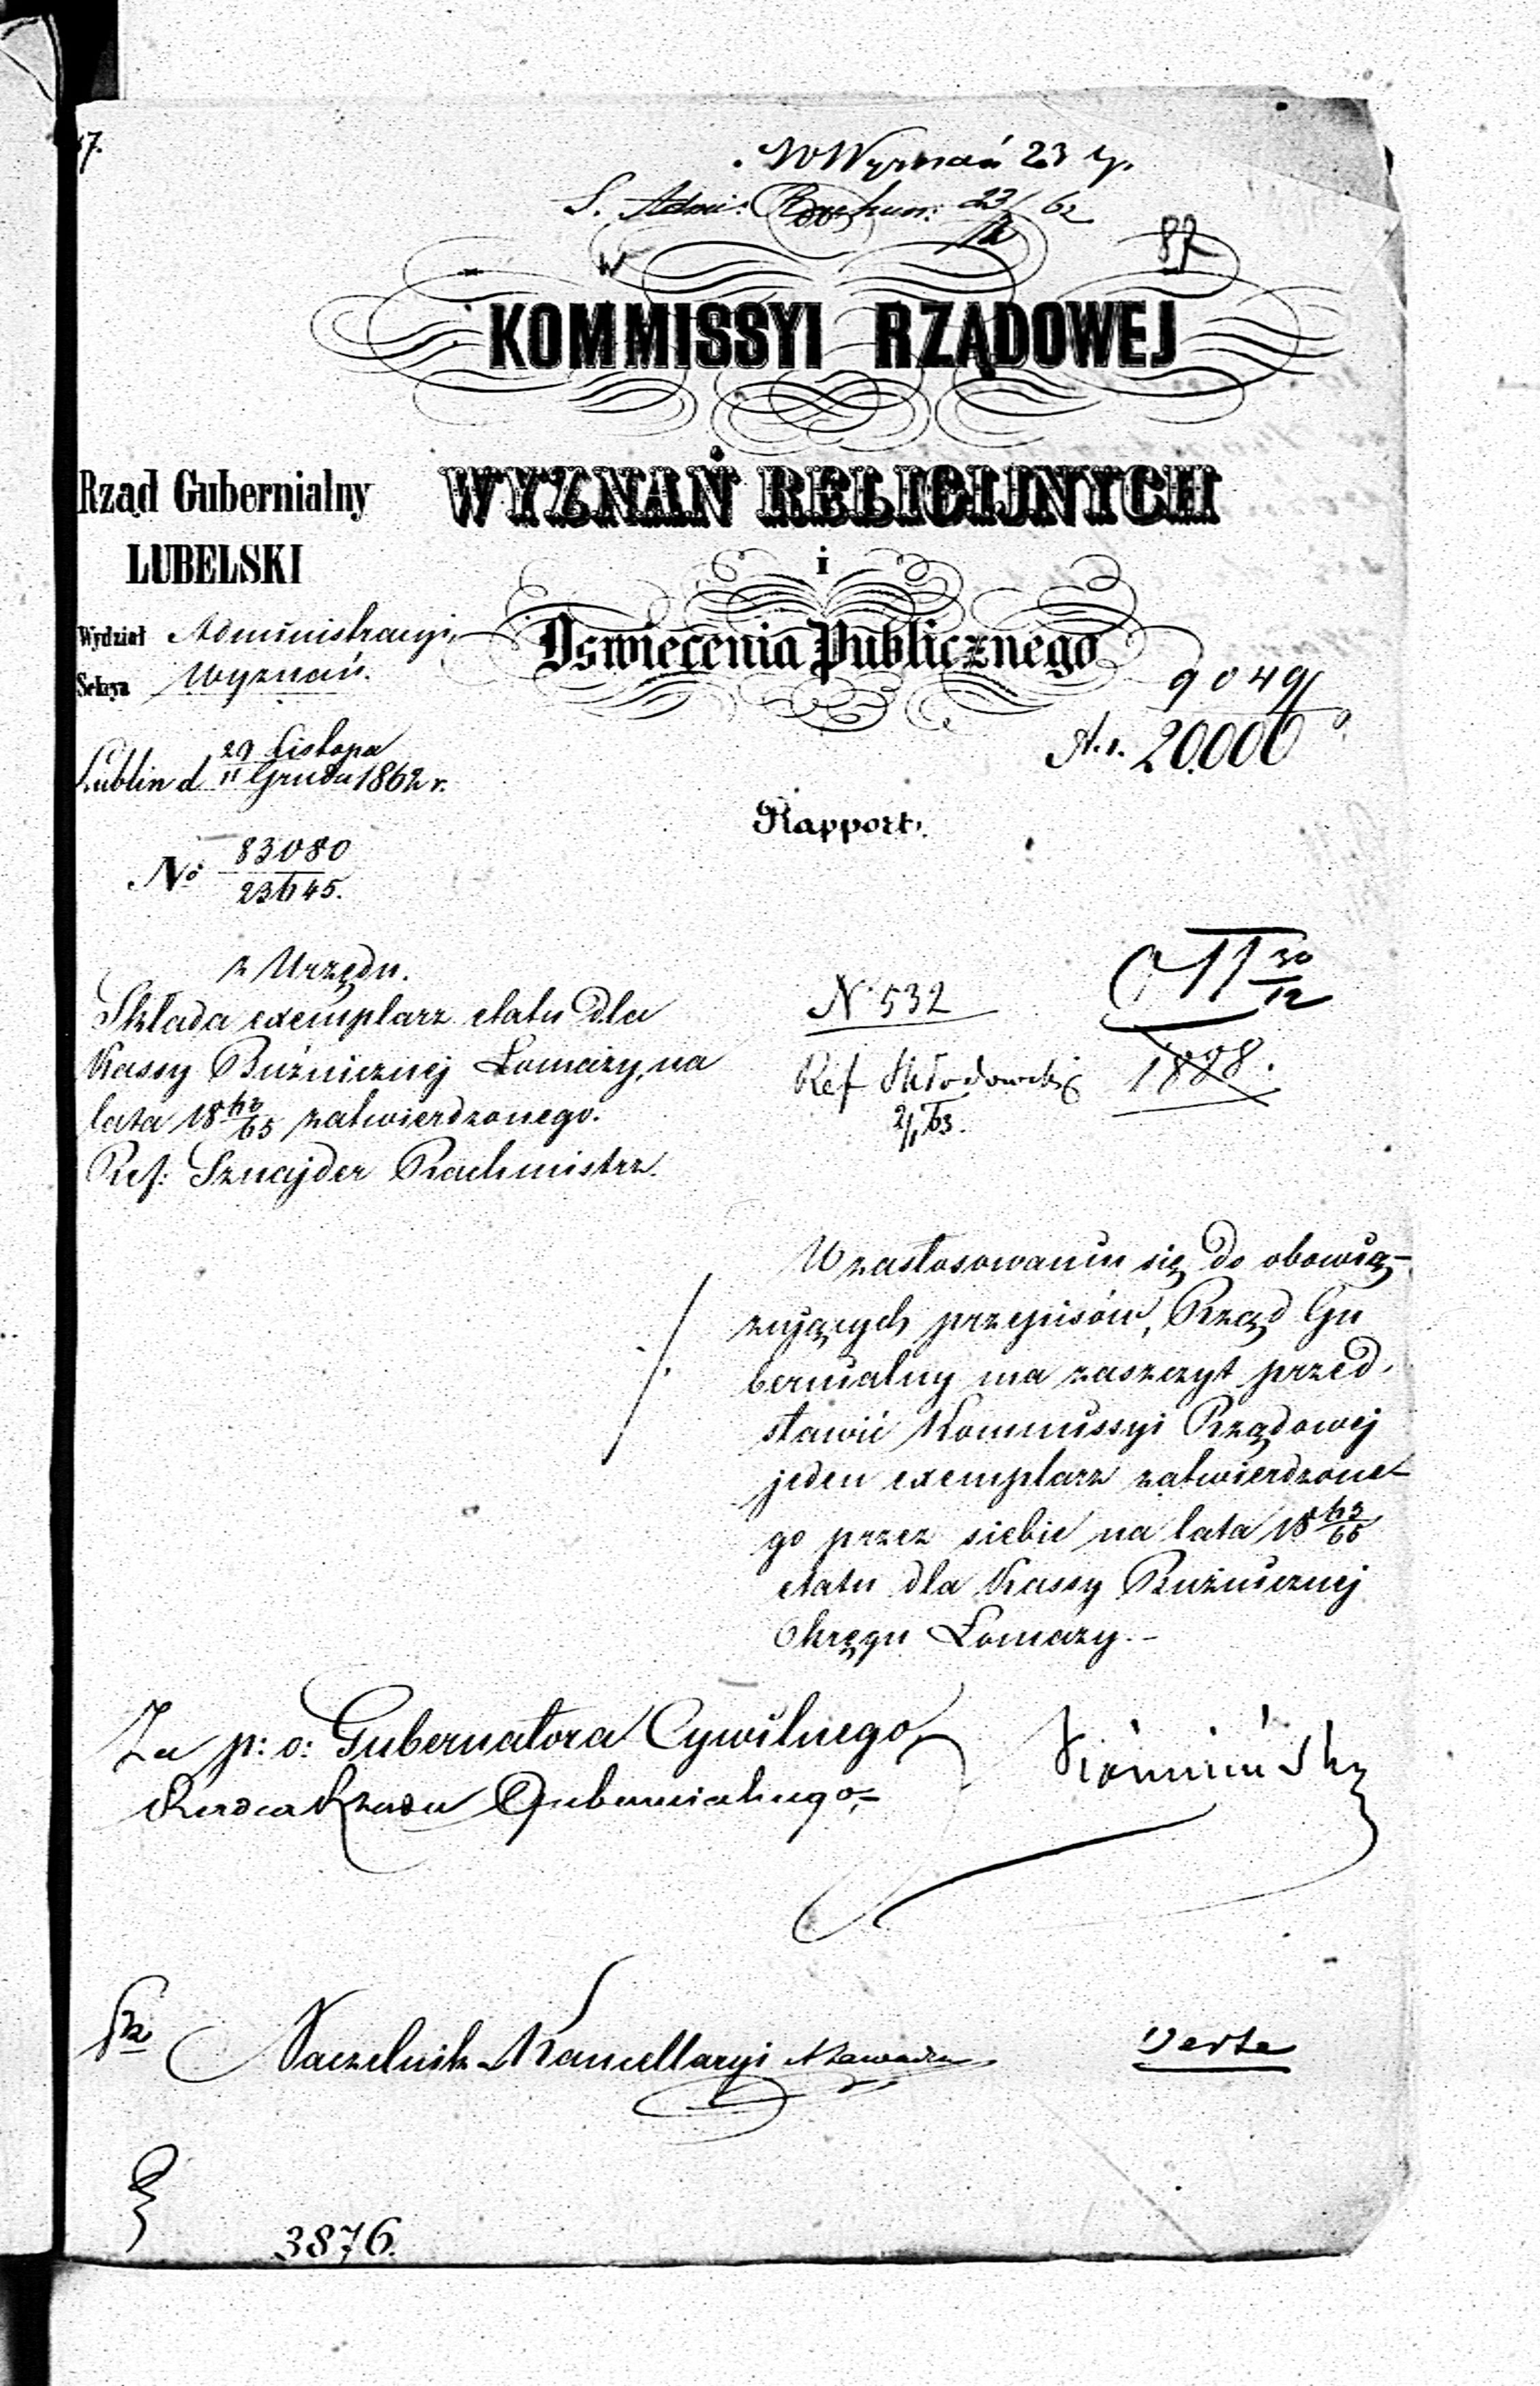 W Wyznań 23
S. Admi: Rachun: 23/12 62
87
KOMMISSYI RZĄDOWEJ
WYZNAŃ RELIGIJNYCH
i
Oświecenia Publicznego
Rząd Gubernialny
LUBELSKI
Wydział Administracyi
Sekcya Wyznań.
9049
20.000
29 Listopa
Lublin d 11 Grudn 1862 r.
Rapport.
No 83080
23645.
z Urzędu.
Składa exemplarz etatu dla
Kassy Bużnicznej Łomazy, na
lata 18 63/65 zatwierdzonego.
Ref: Sznajder Rachmistrz.
N 532
30/12
Ref Skłodowski
2/1 63.
1828.
W zastosowaniu się do obowią-
zujących przepisów, Rząd Gu
bernialny ma zaszczyt przed-
stawić Kommissyi Rządowej
jeden exemplarz zatwierdzone-
go przez siebie na lata 18 63/65
etatu dla Kassy Bużnicznej
Okręgu Łomazy.-
Za p: o: Gubernatora Cywilnego,
Radca Rządu Gubernialnego,
Naczelnik Kancellaryi
Verte
3876.